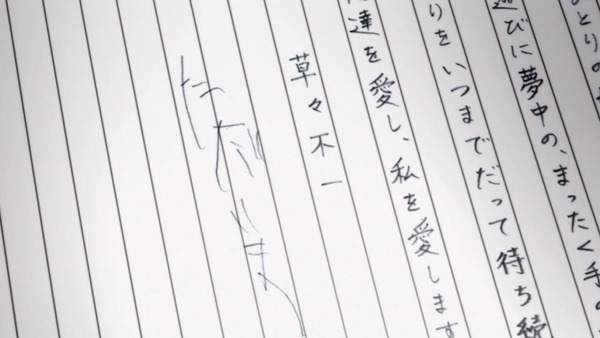 とりの
遊びに夢中の、まったく手の
りをいつまでだって待ち続
達を愛し、私を愛します
草々不一
ただいま